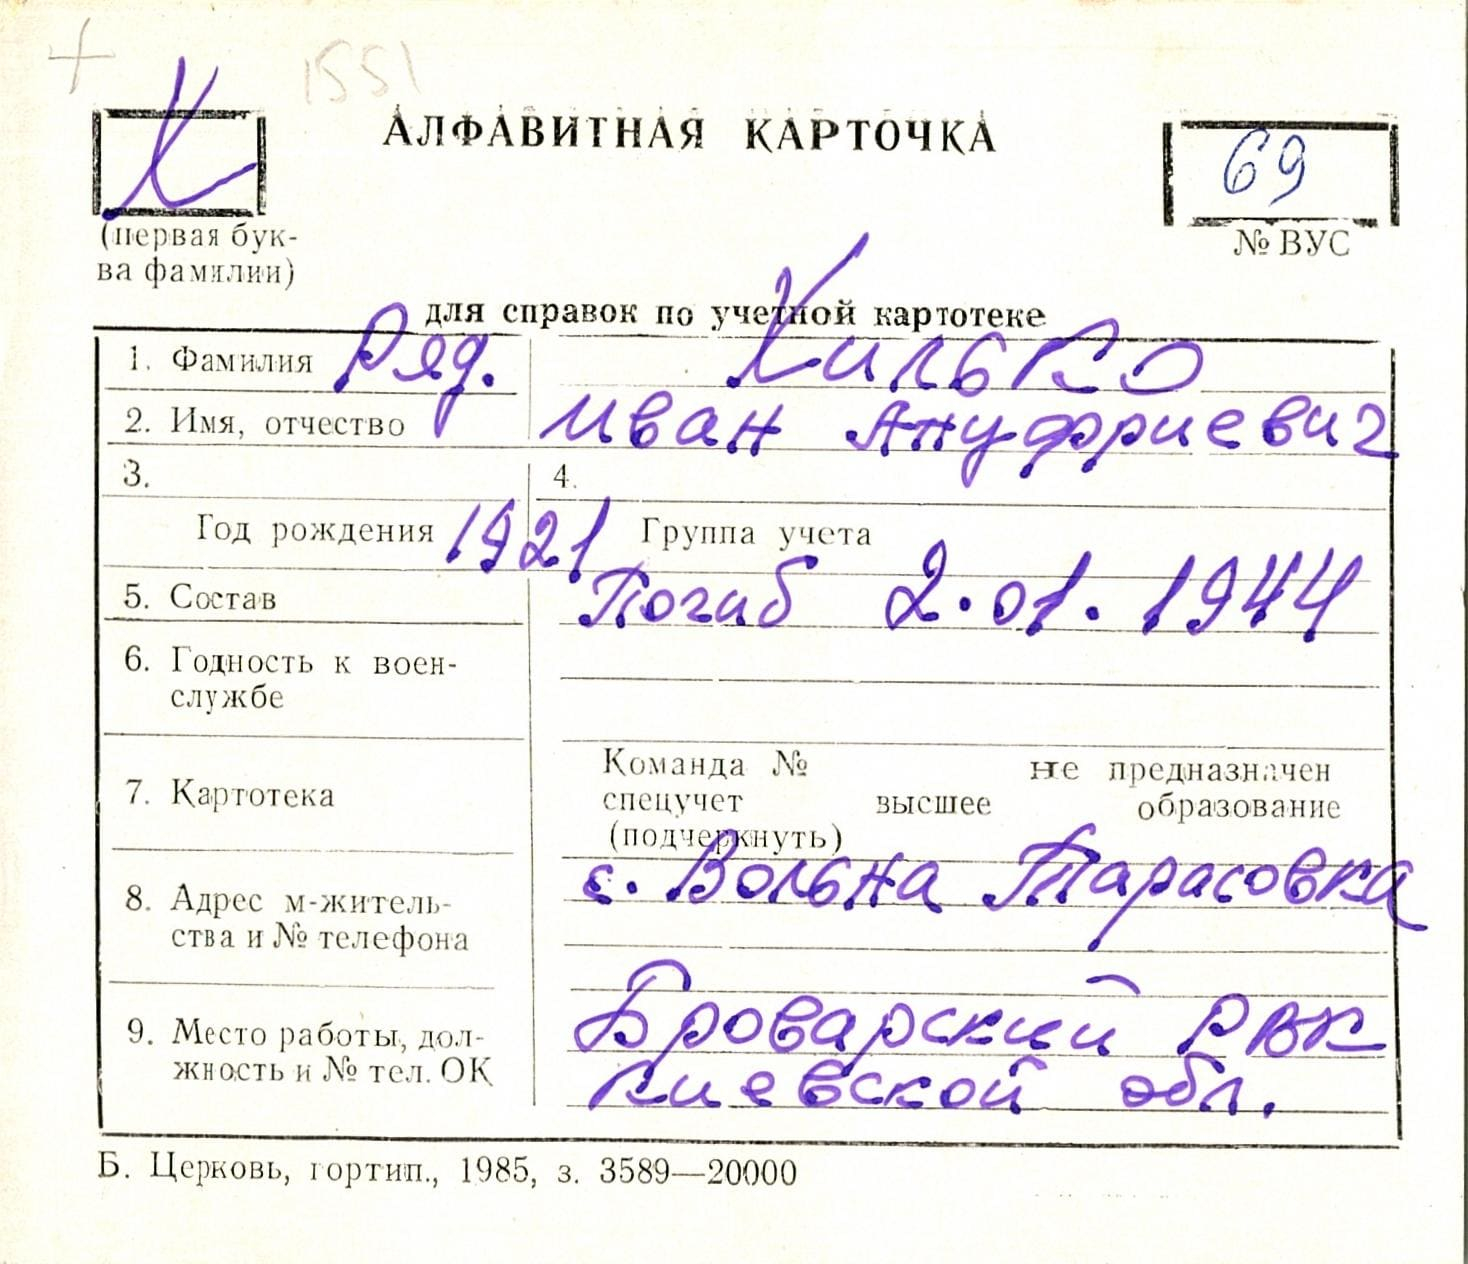 + 1551
Х АЛФАВИТНАЯ КАРТОЧКА 69
(первая бук-
ва фамилии)
№ ВУС
для справок по учетной картотеке
1. Фамилия Ряд. Хилько
2. Имя, отчество Иван Ануфриевич
3. 4.
Год рождения 1921 Группа учета
5. Состав Погиб 2.01.1944
6. Годность к воен-
службе
7. Картотека
Команда № не предназначен
спецучет высшее образование
(подчеркнуть)
8. Адрес м-житель-
ства и № телефона
с. Вольна Тарасовка
9. Место работы, дол-
жность и № тел. ОК
Броварский РВК
Киевской обл.
Б. Церковь, гортип., 1985, з. 3589—20000